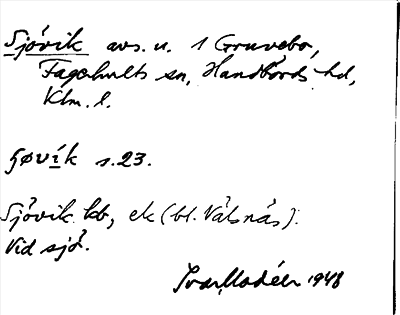 Sjövik avs. u. 1 Gruvebo,
Fagerhults sn, Handbörds hd,
Klm. l.
s.23.
Sjövik kb, ek (bl. Valsnäs).
Vid sjö.
Ivar Modéer 1948